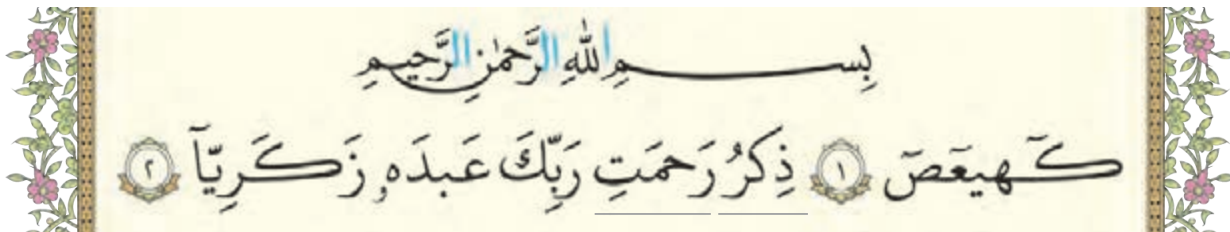 بِسمِ اللهِ الرَّحمٰنِ الرَّحيمِ
كٓهيعٓصٓ ١ ذِكرُ رَحمَتِ رَبِّكَ عَبدَهٗ زَكَرِيّآ ٢